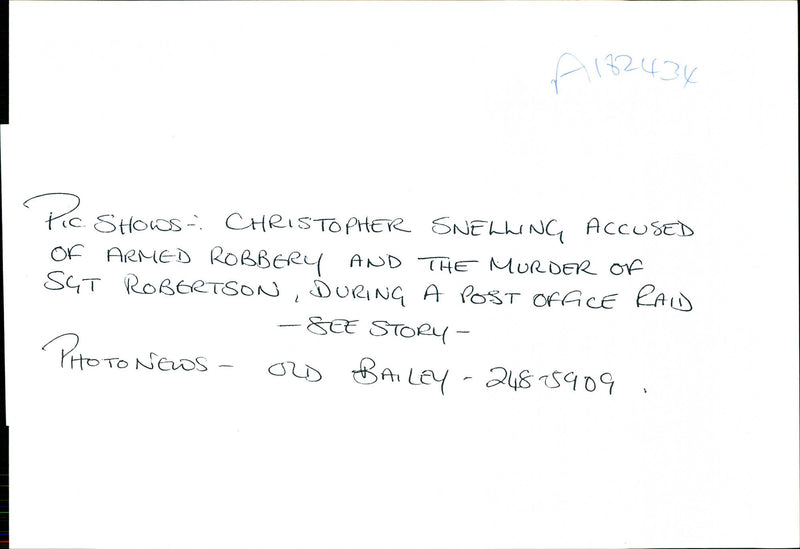 A182434
Pic SHOWS-: CHRISTOPHER SNELLING ACCUSED
OF ARMED ROBBERY AND THE MURDER OF
SGT ROBERTSON, DURING A POST OFFICE RAID
- SEE STORY -
PHOTONEWS - OLD BAILEY - 248-5909.